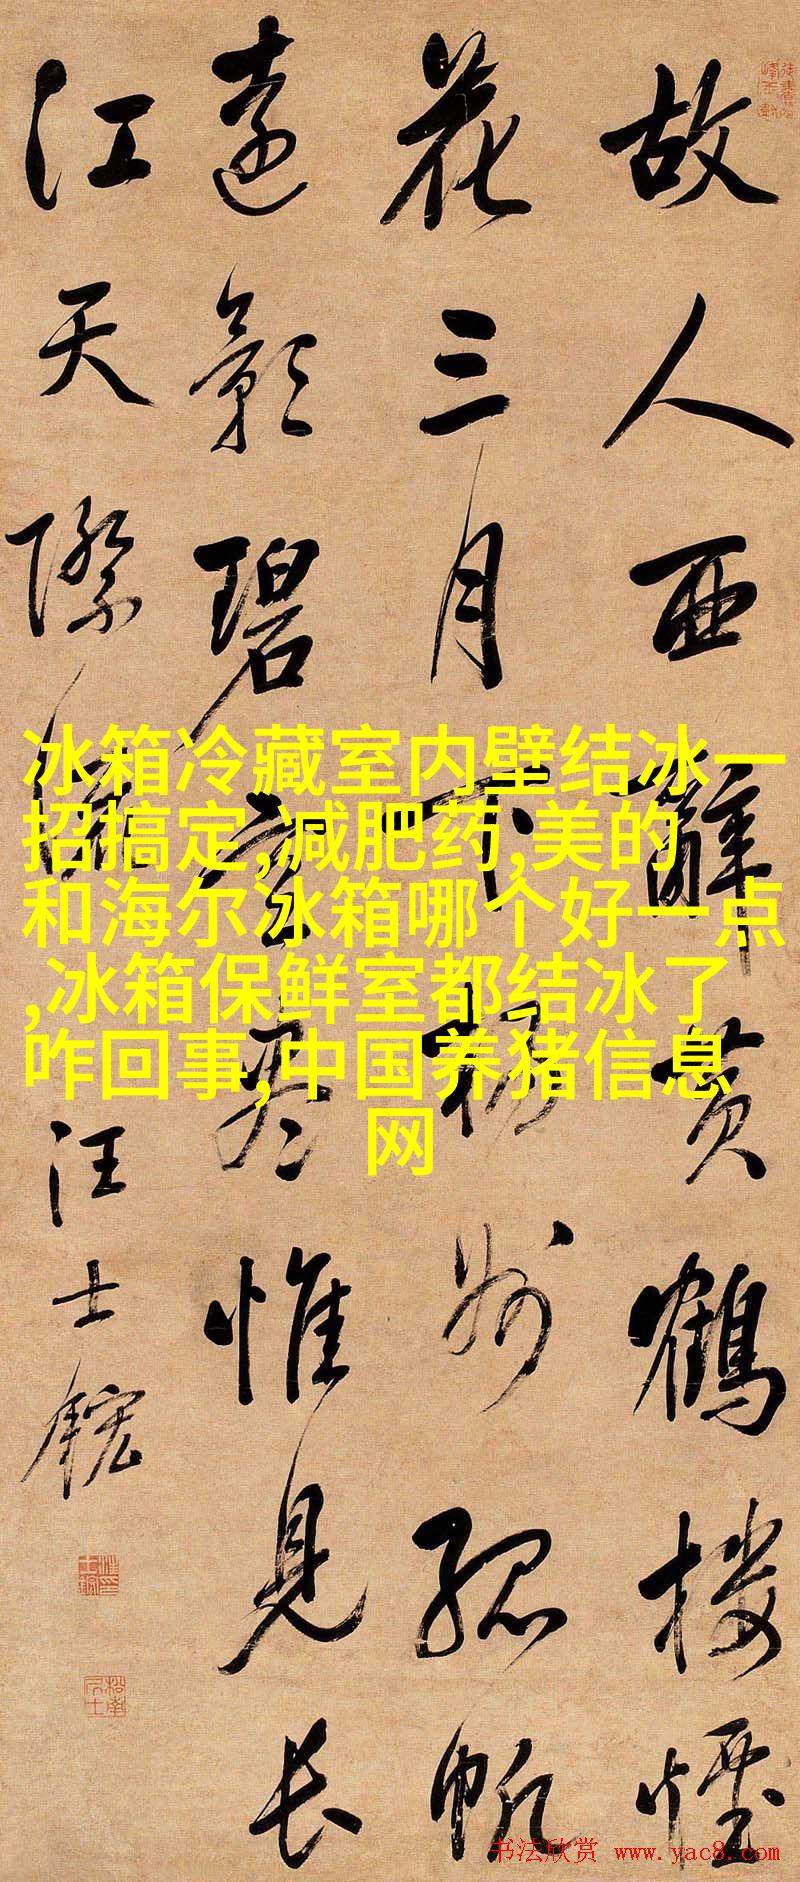 故人西辭黄鶴樓煙
花三月下揚州孤帆
遠影碧空尽惟見长
江天際流
汪士鋐
冰箱冷藏室内壁结冰一
招搞定,减肥药,美的
和海尔冰箱哪个好一点
,冰箱保鲜室都结冰了
咋回事,中国养猪信息
网
书法欣赏 www.yac8.com